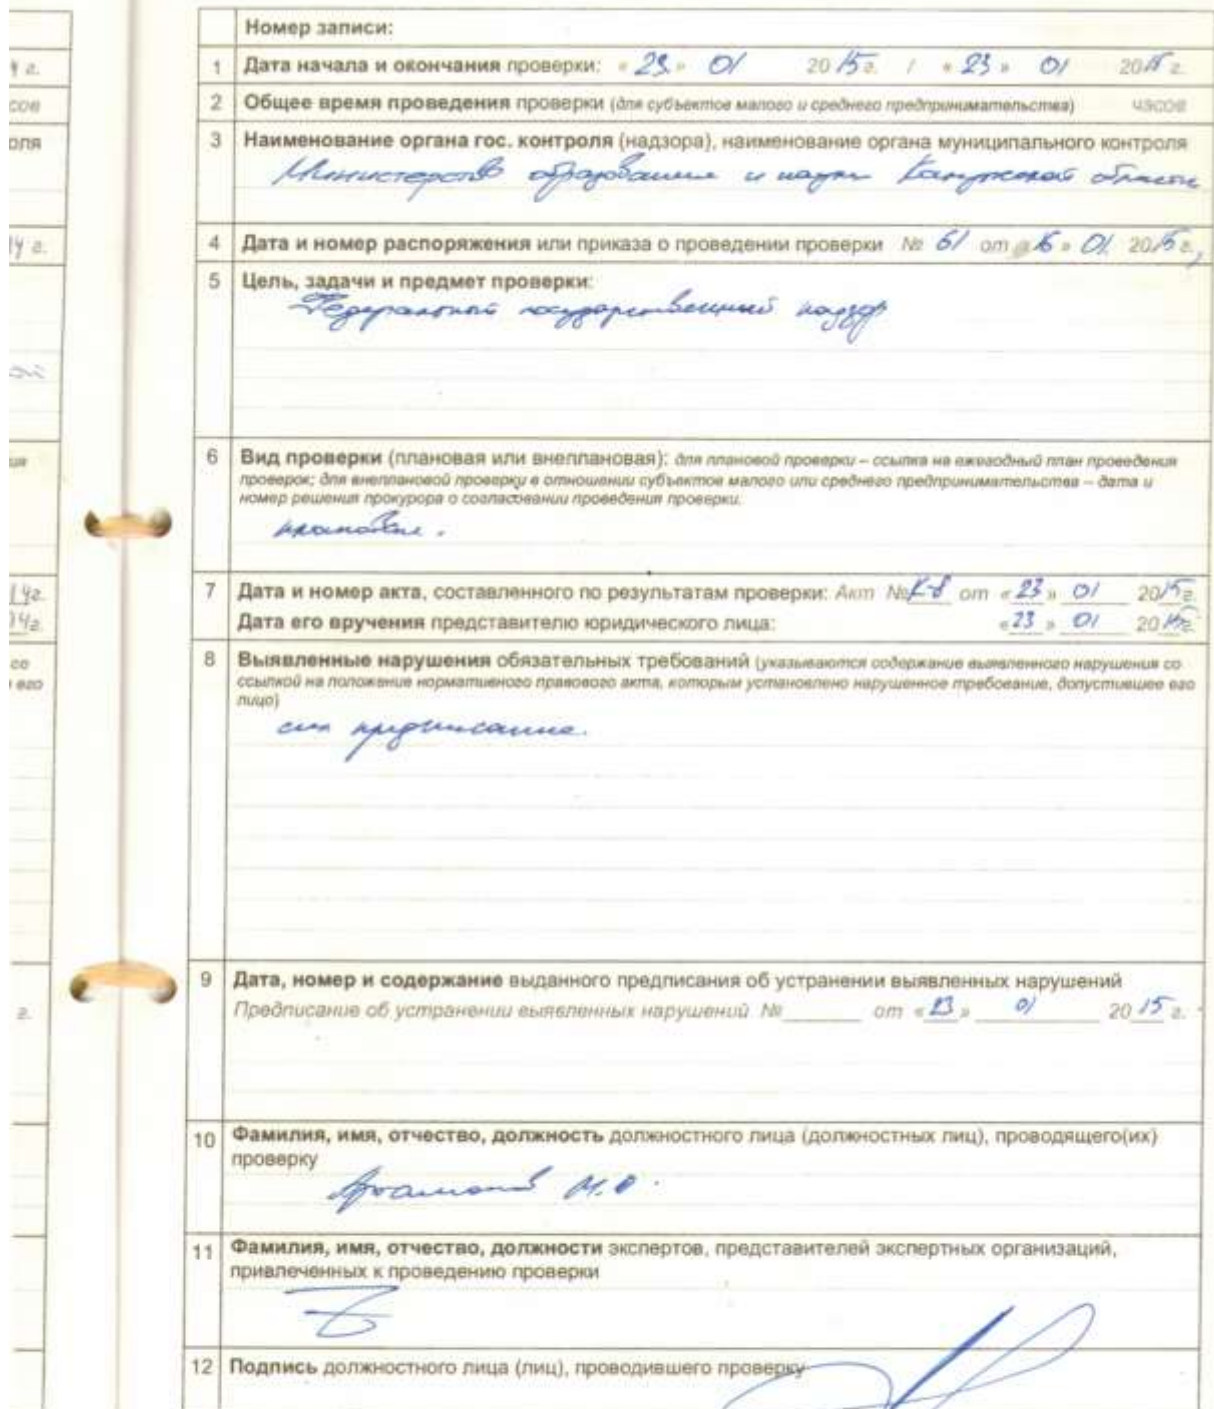 Номер записи:
1 Дата начала и окончания проверки: «23» 01 2015г. / «23» 01 2015г.
2 Общее время проведения проверки (для субъектов малого и среднего предпринимательства) часов
3 Наименование органа гос. контроля (надзора), наименование органа муниципального контроля
Министерство образования и науки Калужской области
4 Дата и номер распоряжения или приказа о проведении проверки № 61 от «16» 01 2015г.
5 Цель, задачи и предмет проверки:
Федеральный государственный надзор
6 Вид проверки (плановая или внеплановая): для плановой проверки – ссылка на ежегодный план проведения
проверок; для внеплановой проверки в отношении субъектов малого или среднего предпринимательства – дата и
номер решения прокурора о согласовании проведения проверки.
плановая.
7 Дата и номер акта, составленного по результатам проверки: Акт № от «23» 01 2015г.
Дата его вручения представителю юридического лица: «23» 01 2015г.
8 Выявленные нарушения обязательных требований (указываются содержание выявленного нарушения со
ссылкой на положение нормативного правового акта, которым установлено нарушенное требование, допустившее его
лицо)
см предписание.
9 Дата, номер и содержание выданного предписания об устранении выявленных нарушений
Предписание об устранении выявленных нарушений № от «23» 01 2015 г.
10 Фамилия, имя, отчество, должность должностного лица (должностных лиц), проводящего(их)
проверку
11 Фамилия, имя, отчество, должности экспертов, представителей экспертных организаций,
привлеченных к проведению проверки
12 Подпись должностного лица (лиц), проводившего проверку